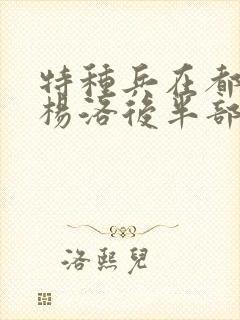 特種兵在都
楊洛後半部
洛熙兒